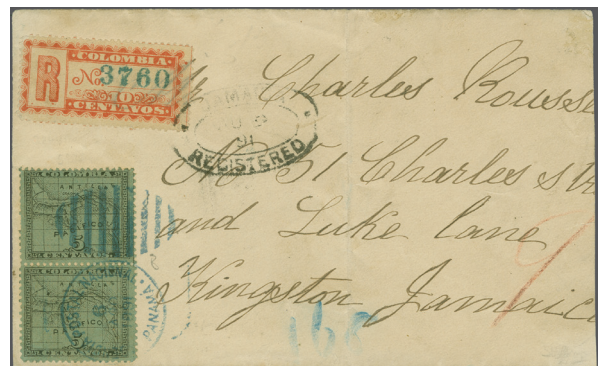 COLOMBIA
R No. 3760
10
CENTAVOS
JAMAICA
91
REGISTERED
Charles Rousse
No 51 Charles str
and Luke lane
Kingston Jamaica
COLOMBIA
5
CENTAVOS
COLOMBIA
PACIFICO
5
CENTAVOS
PANAMA